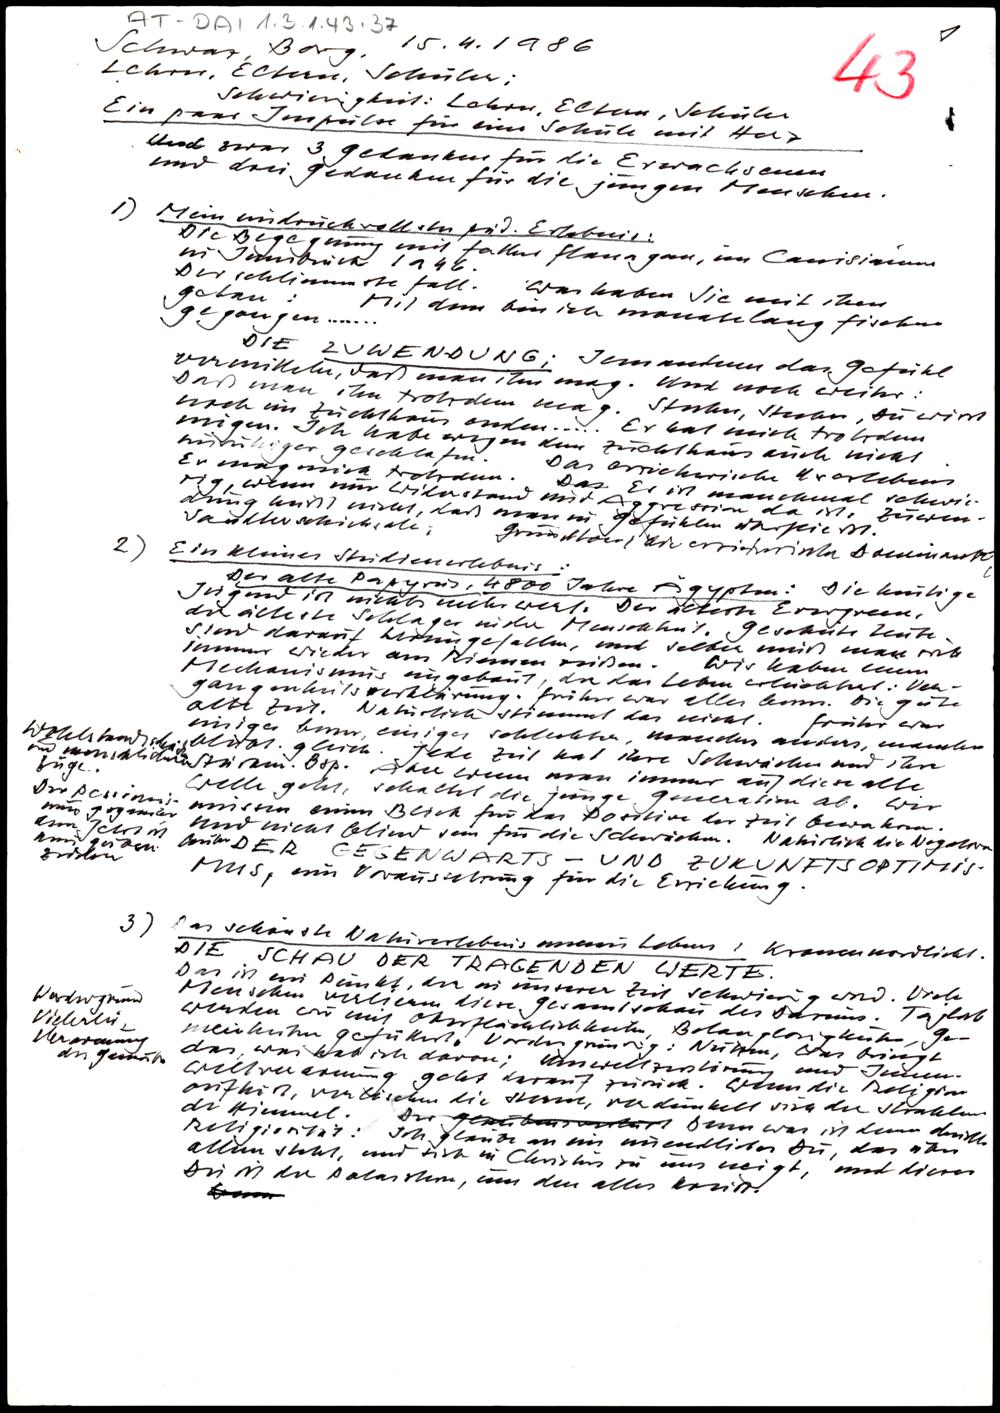 AT-DAI 1.3.1.43.37
1
43
Schwaz, Borg, 15.4.1986
Lehrer, Eltern, Schüler:
Schwierigkeit: Lehrer, Eltern, Schüler
Ein paar Impulse für eine Schule mit Herz
Und zwar 3 Gedanken für die Erwachsenen
und drei Gedanken für die jungen Menschen.
1) Mein eindruckvollster päd. Erlebnis:
Die Begegnung mit father Flanagan, im Canisianum
in Innsbruck 1946.
Der schlimmste fall. Was haben Sie mit ihm
getan: Mit dem bin ich monatelang fischen
gegangen.......
DIE ZUWENDUNG: Jemandem das Gefühl
vermitteln, daß man ihn mag. Und noch weiter:
Daß man ihn trotzdem mag. Stecher, Stecher, Du wirst
noch im Zuchthaus enden..... Er hat mich trotzdem
mögen. Ich habe wegen dem Zuchthaus auch nicht
unruhiger geschlafen. Das erzieherische
Er mag mich trotzdem. Das Es ist manchmal schwie-
rig, wenn nur Widerstand und Aggression da ist. Zuwen-
dung heißt nicht, daß man in Gefühlen
Sandlerschicksale: die erzieherische Dominante
2) Ein kleines Studienerlebnis:
Der alte Papyrus, 4800 Jahre Ägypten: Die heutige
Jugend ist nichts mehr wert. Der älteste Evergreen,
der älteste Schlager in der Menschheit. Gescheite Leute
sind darauf hereingefallen, und selber muß man sich
immer wieder am Riemen reißen. Wir haben einen
Mechanismus eingebaut, der das Leben erleichtert: Ver-
gangenheitsverklärung. früher war alles besser. Die gute
alte Zeit. Natürlich stimmt das nicht. früher war
einiges besser, einiges schlechter, manches anders, manches
bleibt gleich. Jede Zeit hat ihre Schwächen und ihre
Stärken. Bsp. Aber wenn man immer auf diese alte
Welle geht, schachtet die junge Generation ab. Wir
müssen einen Blick für das Positive der Zeit bewahren.
Und nicht blind sein für die Schwächen. Natürlich die Negativen
DER GEGENWARTS - UND ZUKUNFTSOPTIMIS-
MUS, eine Voraussetzung für die Erziehung.
Wohlstandsschäden
und menschliche
Züge.
Der Pessimis-
mus gegenüber
dem
3) Das schönste Naturerlebnis meines Lebens: Kronennordlicht.
DIE SCHAU DER TRAGENDEN WERTE.
Das ist ein Punkt, der in unserer Zeit schwierig wird. Viele
Menschen verlieren diese Gesamtschau des Daseins. Täglich
werden wir mit Oberflächlichkeiten, Belanglosigkeiten, Ge-
meinheiten gefüttert. Vordergründig: Nutzen, was bringt
das, was hab ich davon; Umweltzerstörung und Innen-
weltverarmung geht darauf zurück. Wenn die Religion
aufhört, verlöschen die Sterne, verdunkelt sich der Strahlen
der Himmel. Denn was ist denn christliche
Religiosität: Ich glaube an ein unendliches Du, das über
allem steht, und sich in Christus zu uns neigt, und dieses
Du ist der Polarstern, um den alles kreist.
Vordergrund
Vielerlei -
Verarmung
des Gemütes